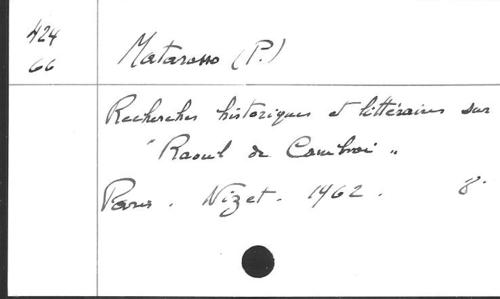 424
66
Matarasso (P.)
Recherches historiques et littéraires sur
"Raoul de Cambrai"
Paris. Nizet. 1962. 8°